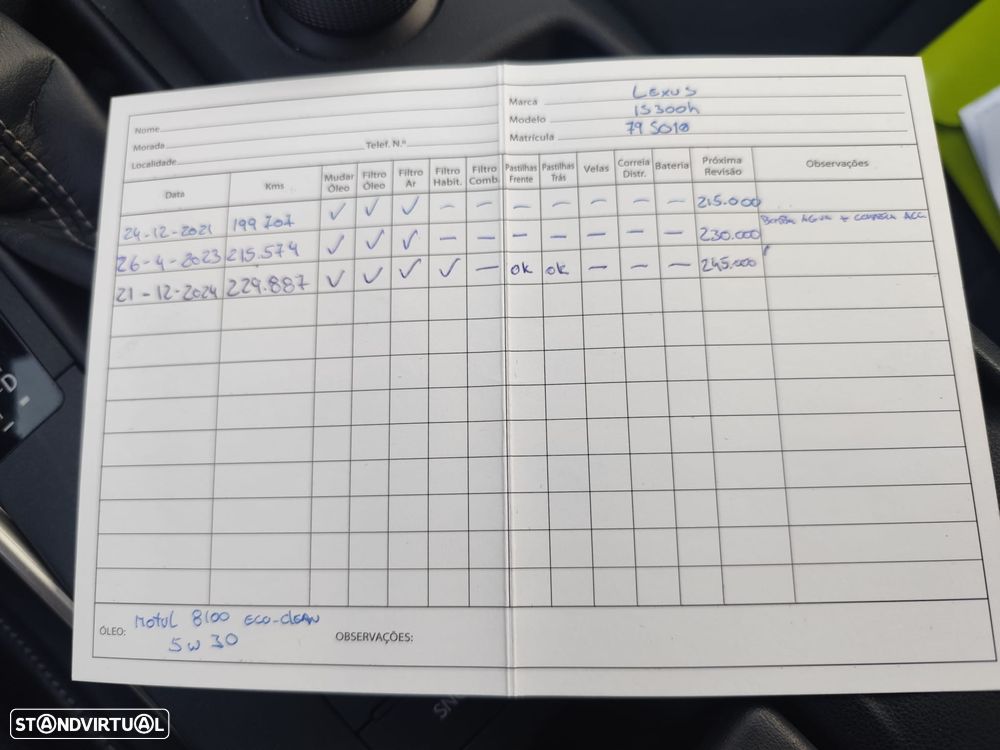 Nome
Morada
Telef. N.º
Localidade
Marca LEXUS
Modelo IS300h
Matrícula
Data Kms Mudar Óleo Filtro Óleo Filtro Ar Filtro Habit. Filtro Comb. Pastilhas Frente Pastilhas Trás Velas Correia Distr. Bateria Próxima Revisão Observações
24-12-2021 199.707 ✓ ✓ ✓ — — — — — — — 215.000
26-4-2023 215.574 ✓ ✓ ✓ — — — — — — — 230.000 BOMBA AGUA +
21-12-2024 229.887 ✓ ✓ ✓ ✓ — ok ok — — — 245.000
ÓLEO: MOTUL 8100 ECO-CLEAN
5W30
OBSERVAÇÕES:
STANDVIRTUAL